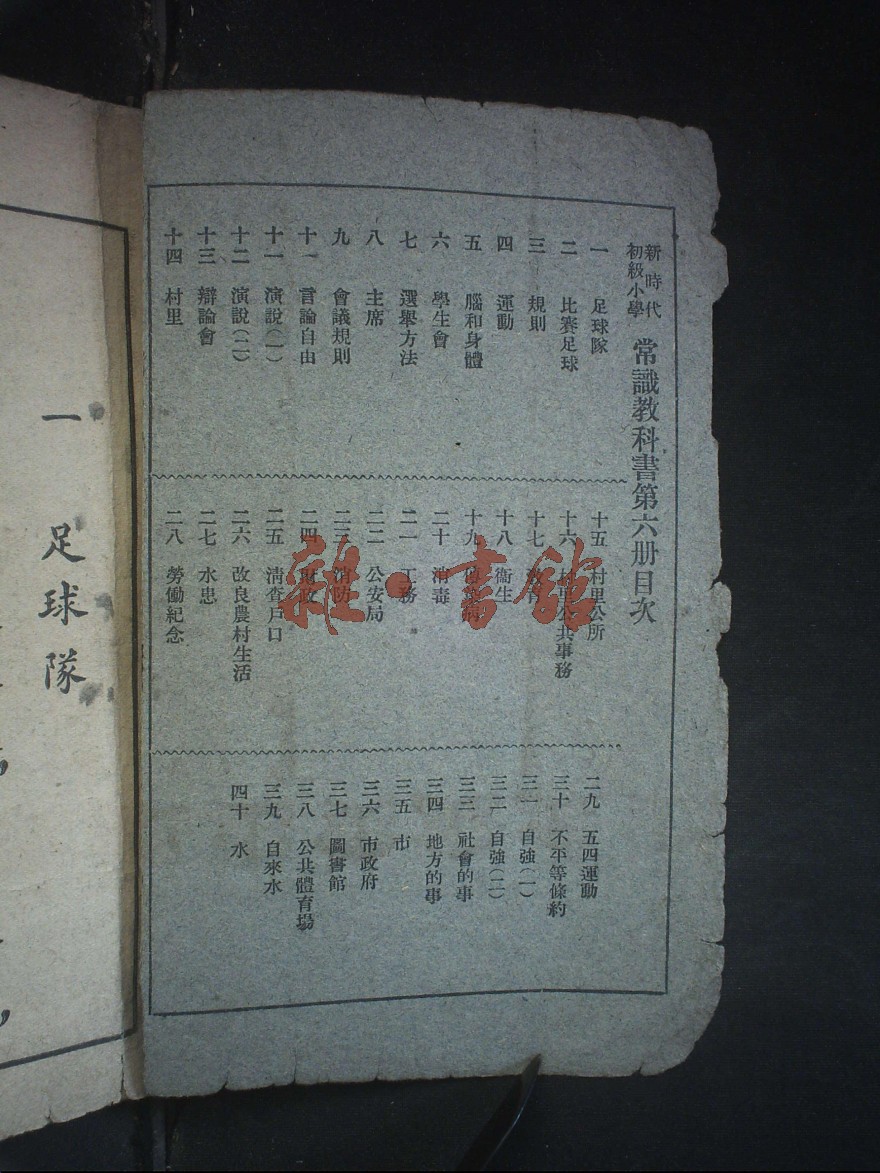 新時代
初級小學
常識教科書第六册目次
一 足球隊
二 比賽足球
三 規則
四 運動
五 腦和身體
六 學生會
七 選舉方法
八 主席
九 會議規則
十一 言論自由
十一 演說(一)
十二 演說(二)
十三 辯論會
十四 村里
十五 村里公所
十六 村里公共事務
十七 教育
十八 衞生
十九 傳染病
二十 消毒
二一 工務
二二 公安局
二三 消防
二四 財政
二五 清查戶口
二六 改良農村生活
二七 水患
二八 勞働紀念
二九 五四運動
三十 不平等條約
三一 自強(一)
三二 自強(二)
三三 社會的事
三四 地方的事
三五 市
三六 市政府
三七 圖書館
三八 公共體育場
三九 自來水
四十 水
一 足球隊
雜·書館